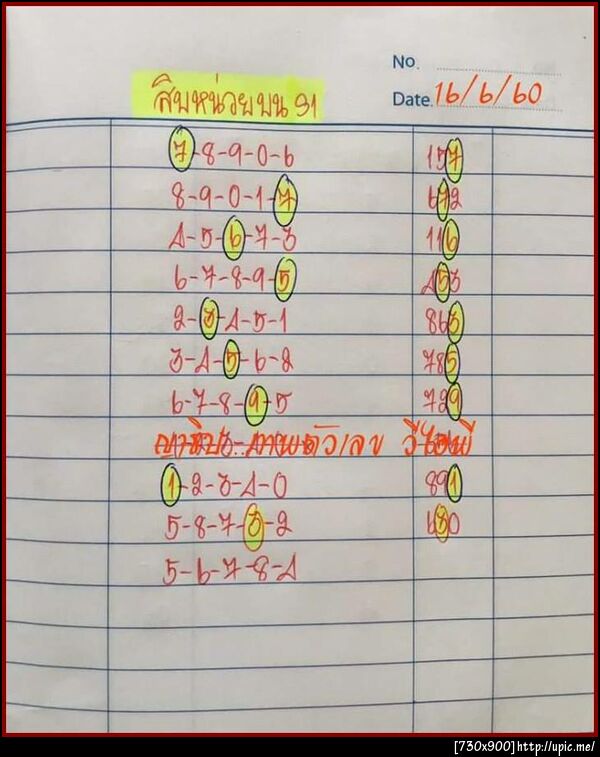 No.
Date. 16/6/60
สิบหน่วยบน 91
7-8-9-0-6 157
8-9-0-1-7 672
4-5-6-7-3 116
6-7-8-9-5 453
2-3-4-5-1 863
3-4-5-6-2 785
6-7-8-9-5 729
ภาพตัวเลข วีไอพี
1-2-3-4-0 891
5-8-7-3-2 630
5-6-7-8-4
[730x900] http://upic.me/